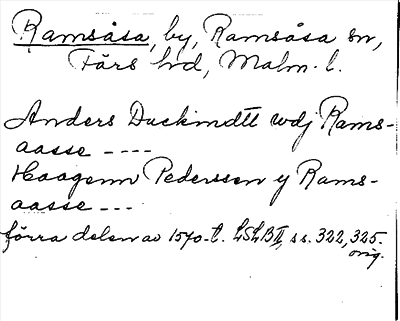 Ramsåsa, by, Ramsåsa sn,
Färs hd, Malm. l.
Anders Duckindtt wdj Rams-
aasse ----
Haagenn Pederssen y Rams-
aasse ---
förra delen av 1570-t. LSLB II, ss. 322, 325.
orig.